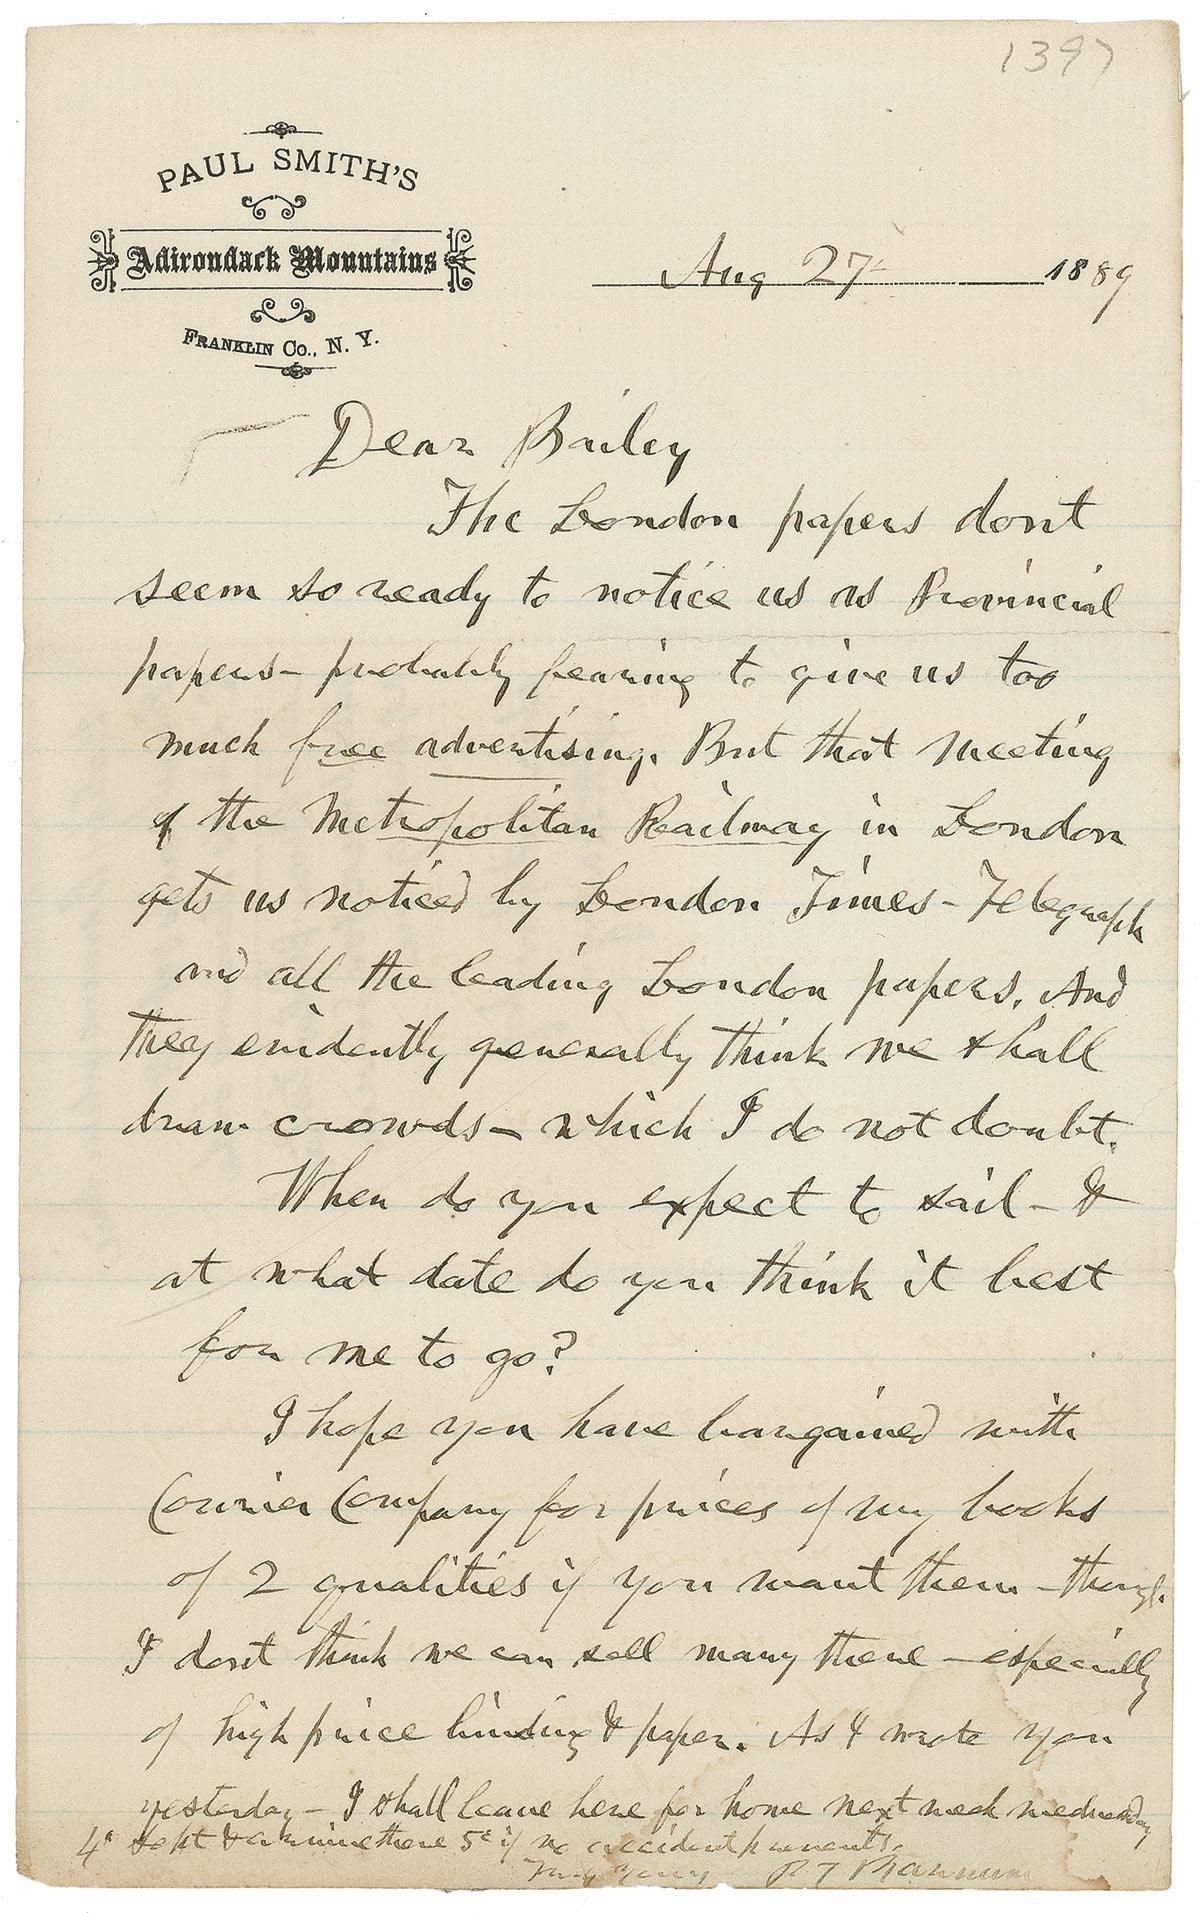 1397
PAUL SMITH'S
Adirondack Mountains
FRANKLIN CO., N. Y.
Aug 27 1889
Dear Bailey
The London papers dont
seem so ready to notice us as Provincial
papers - probably fearing to give us too
much free advertising. But that meeting
of the Metropolitan Railway in London
gets us noticed by London Times - Telegraph
and all the leading London papers. And
they evidently generally think we shall
draw crowds - which I do not doubt.
When do you expect to sail - &
at what date do you think it best
for me to go?
I hope you have bargained with
Courier Company for prices of my books
of 2 qualities if you want them - though
I dont think we can sell many there - especially
of high price binding & paper. As I wrote you
yesterday - I shall leave here for home next week wednesday
4th Sept & arrive there 5th if no accident prevents.
Truly yours P T Barnum